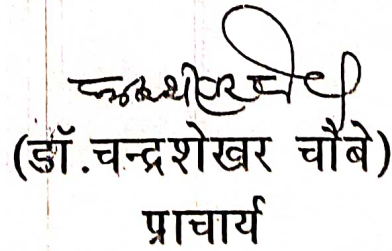 (डॉ.चन्द्रशेखर चौबे)
प्राचार्य